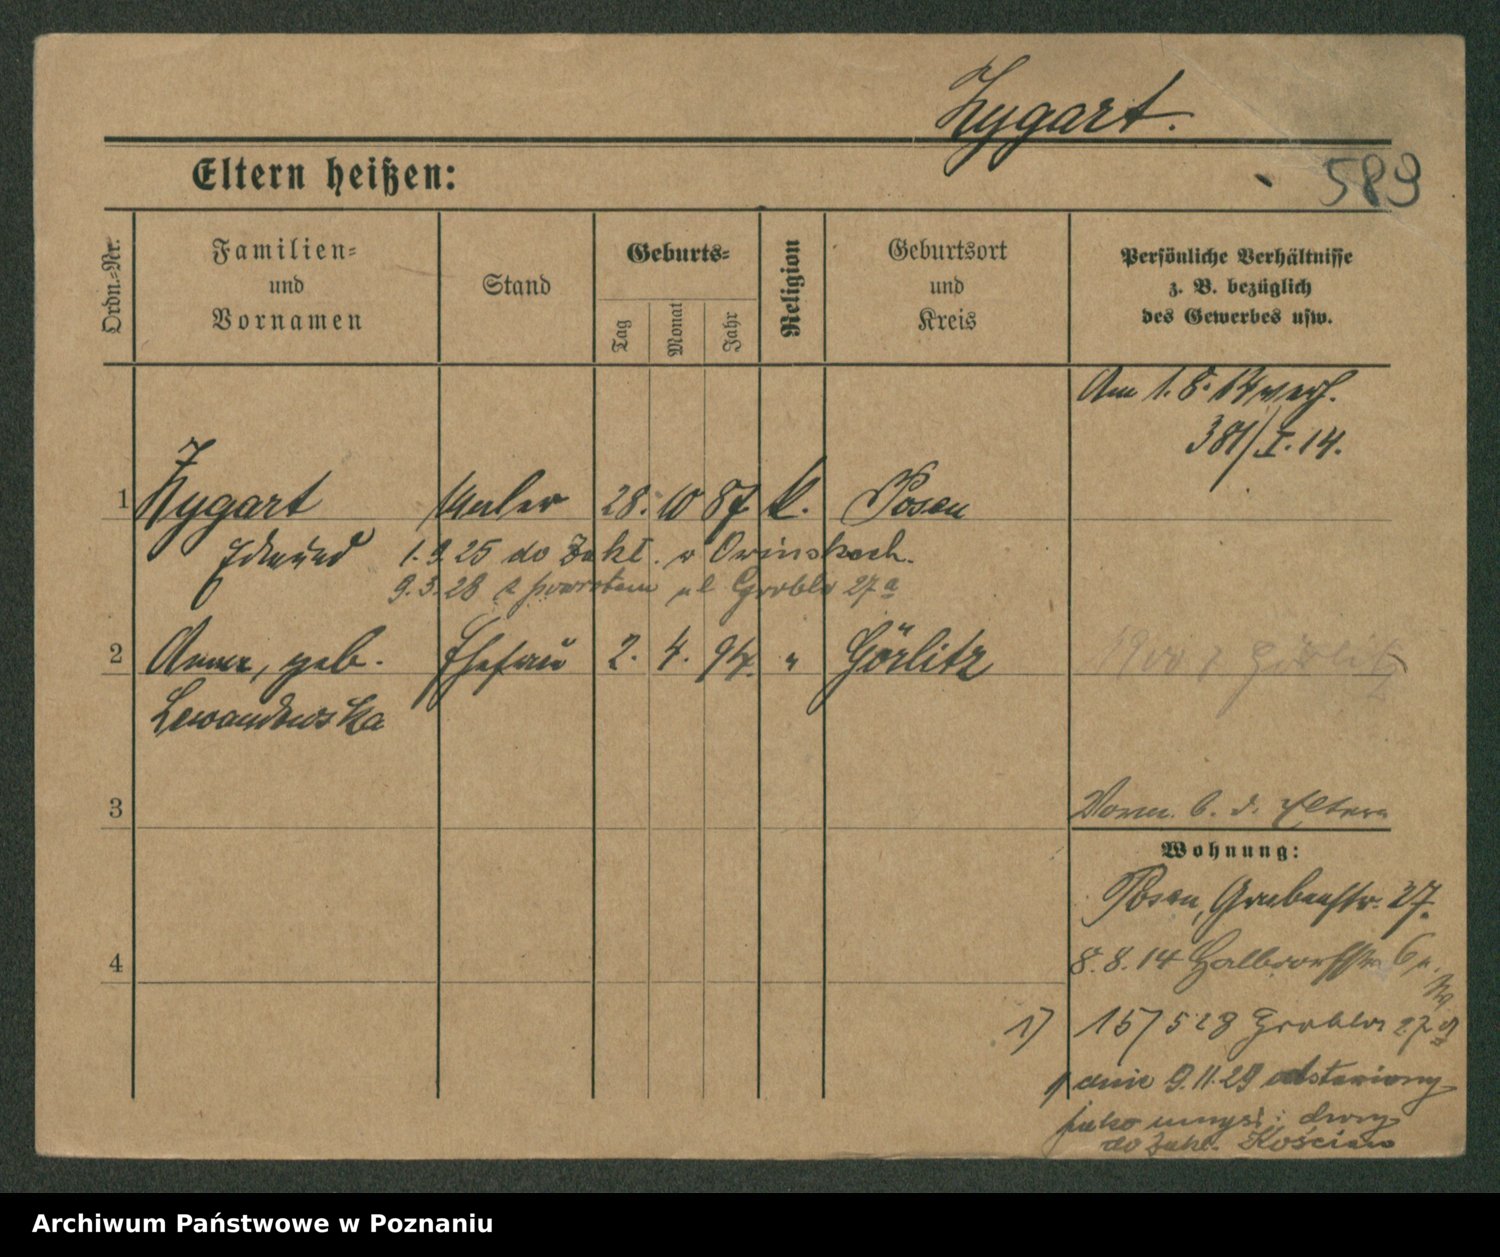 Zygart.
589
Eltern heißen:
Ordn.-Nr.
Familien-
und
Vornamen
Stand
Geburts-
Tag
Monat
Jahr
Religion
Geburtsort
und
Kreis
Persönliche Verhältnisse
z. B. bezüglich
des Gewerbes usw.
Am 1.8.14 verh.
381/I.14.
1 Zygart Maler 28. 10 87 k. Posen
Edmund 1.9.25 do Zakł. w Owinskach.
9.5.28 z powrotem ul Grobla 27a
2 Anna, geb. Ehefrau 2. 4. 94. " Görlitz
Lewandowska
1900 z Görlitz
3
Vorm. b. d. Eltern
Wohnung:
Posen, Grabenstr. 27.
4
8.8.14 Halbdorfstr 6
1) 15/5 28 Grobla 27a
1) dnia 9.11.29 odstawiony
jako umysł: chory
do Zakł. Kościan
Archiwum Państwowe w Poznaniu